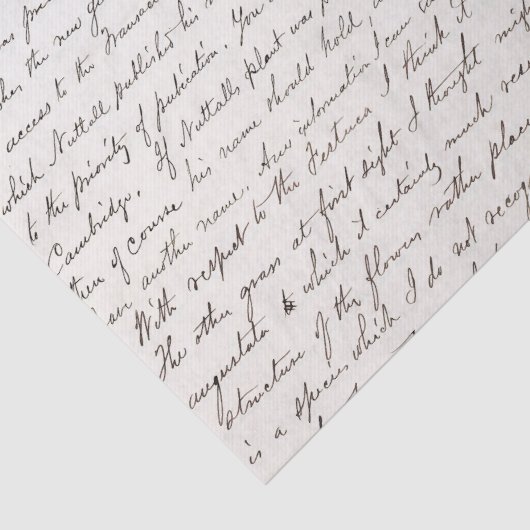 the new ge
access to the Transac
which Nuttall published his
to the priority of publication. You
Cambridge. If Nuttalls plant was p
then of course his name should hold, a
have another name. Any information I can
With respect to the Festuca, I think it
The other grass at first sight I thought mig
augustata to which it certainly much rese
structure of the flowers rather place
is a species which I do not recog